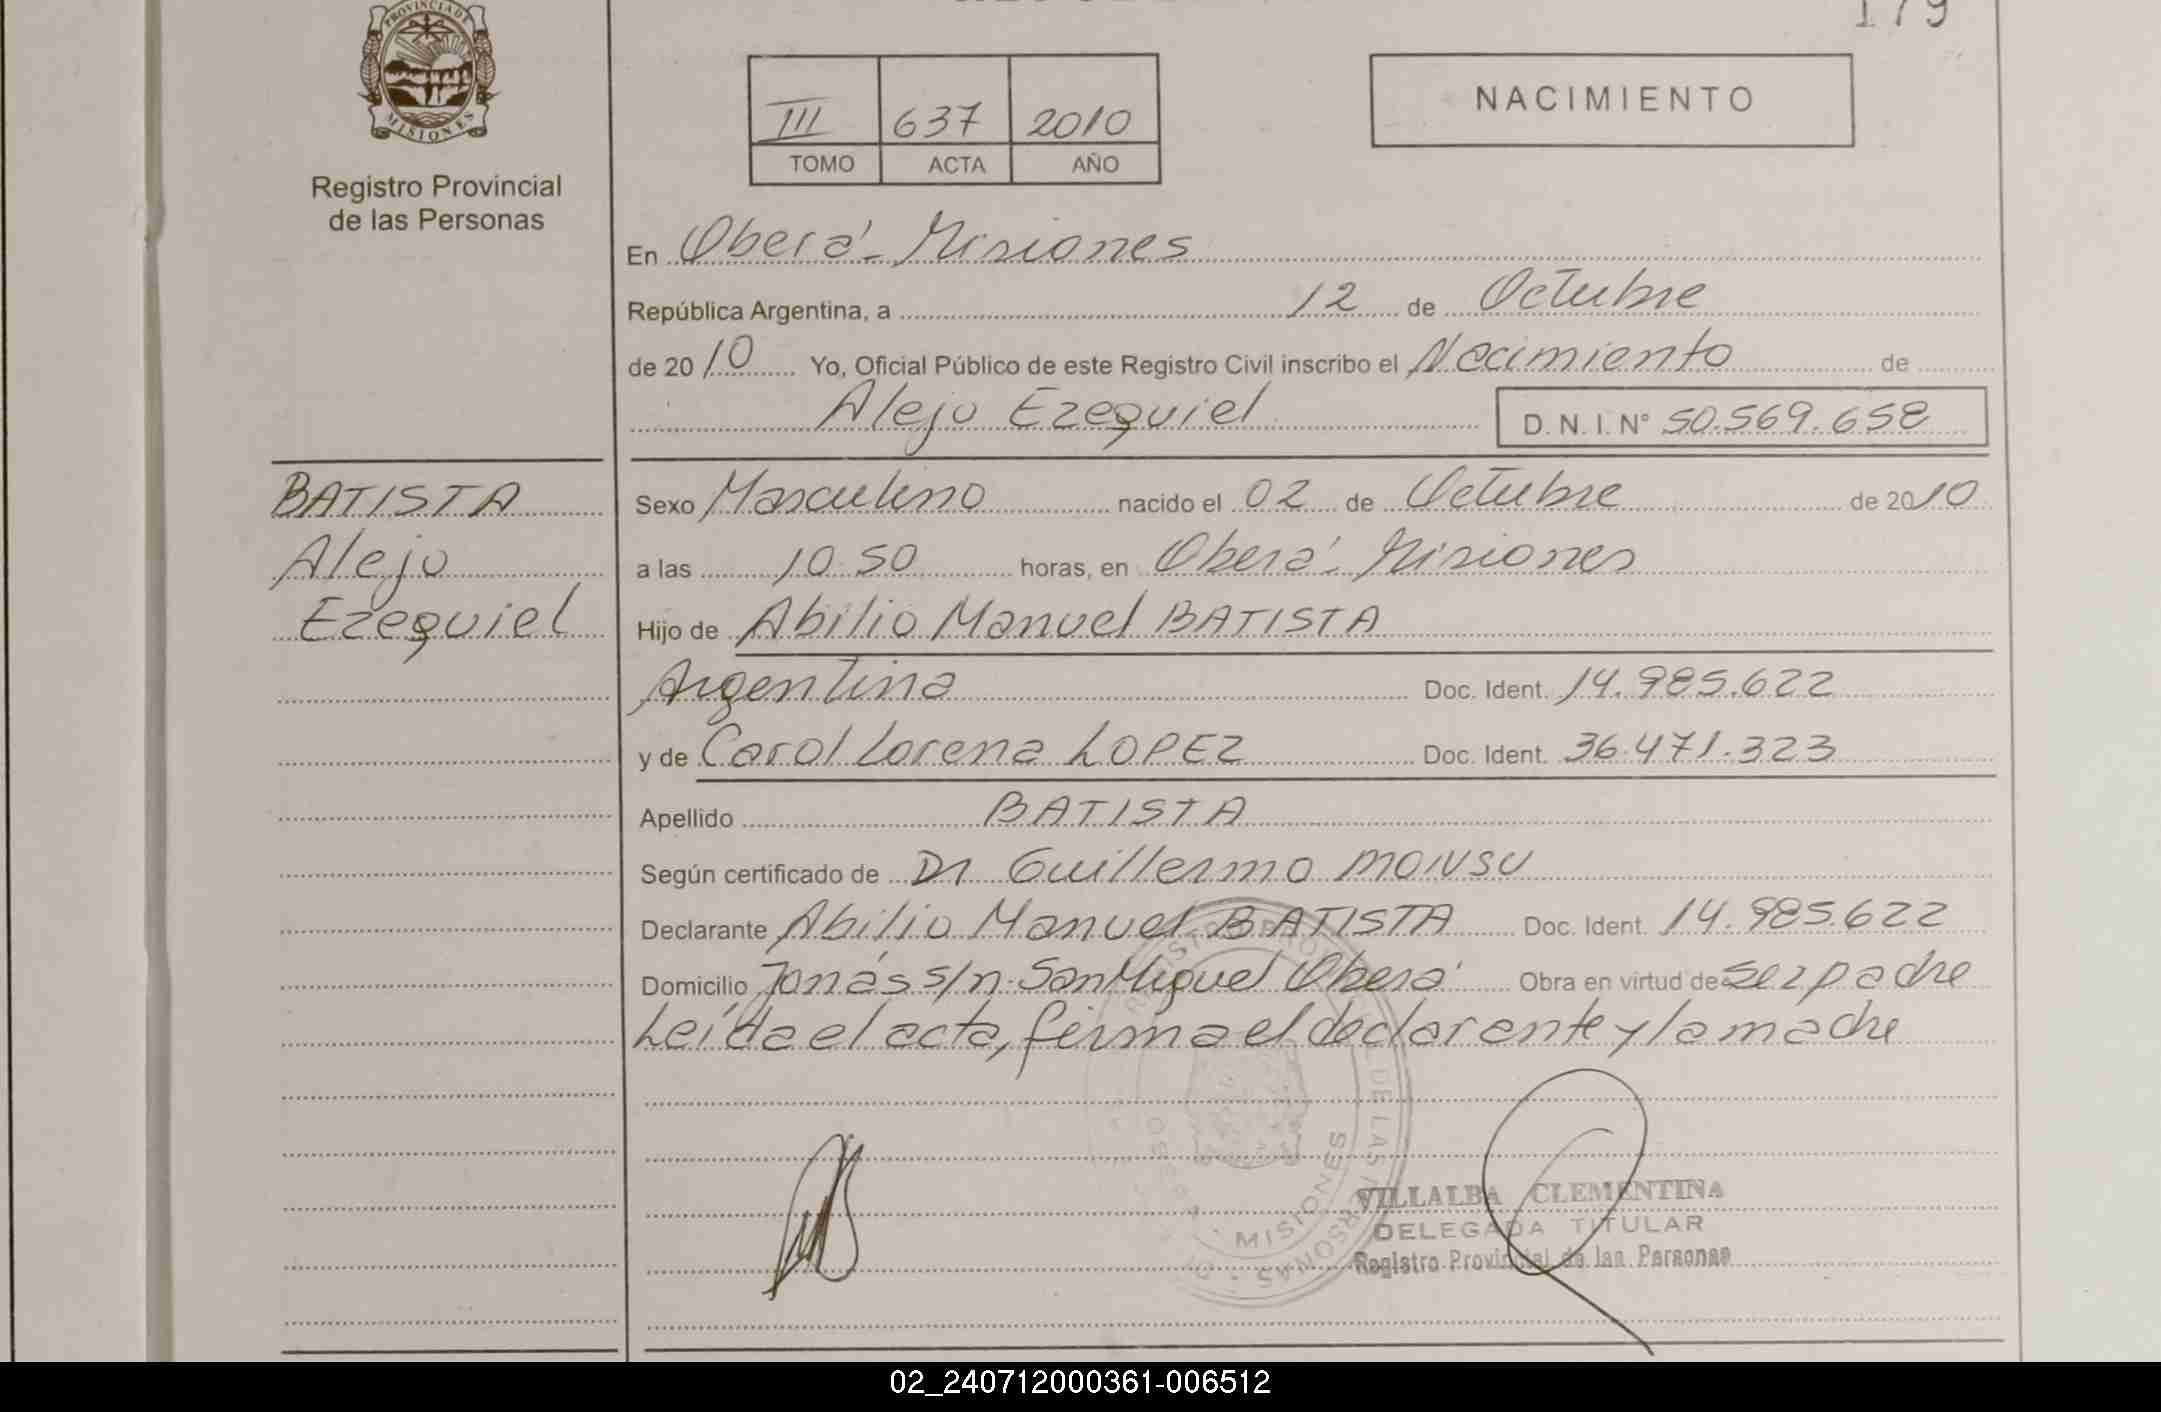 179
PROVINCIA DE
MISIONES
Registro Provincial
de las Personas
III 637 2010
TOMO ACTA AÑO
NACIMIENTO
En Oberá - Misiones
República Argentina, a 12 de Octubre
de 2010 Yo, Oficial Público de este Registro Civil inscribo el Nacimiento de
Alejo Ezequiel D. N. I. N° 50.569.658
BATISTA
Alejo
Ezequiel
Sexo Masculino nacido el 02 de Octubre de 2010
a las 10:50 horas, en Oberá - Misiones
Hijo de Abilio Manuel BATISTA
Argentina Doc. Ident. 14.985.622
y de Carol Lorena LOPEZ Doc. Ident. 36.471.323
Apellido BATISTA
Según certificado de Dr Guillermo MONSU
Declarante Abilio Manuel BATISTA Doc. Ident. 14.985.622
Domicilio Jonás s/n. San Miguel Oberá Obra en virtud de ser padre
Leída el acta, firma el declarante y la madre
MISIONES
VILLALBA CLEMENTINA
DELEGADA TITULAR
Registro Provincial de las Personas
02_240712000361-006512